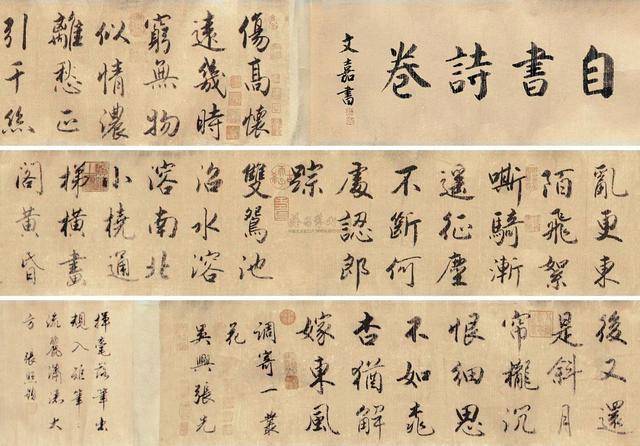 自書詩卷
文嘉書
傷高懷
遠幾時
窮無物
似情濃
離愁正
引千絲
亂更東
陌飛絮
嘶騎漸
遥征塵
不斷何
處認郎
踪
雙鴛池
沼水溶
溶南北
小橈通
梯橫畫
閣黃昏
後又還
是斜月
帘櫳沉
恨細思
不如桃
杏猶解
嫁東風
調寄一叢
花
吳興張先
揮毫落筆出
規入矩筆
流麗瀟洒大
方 張照